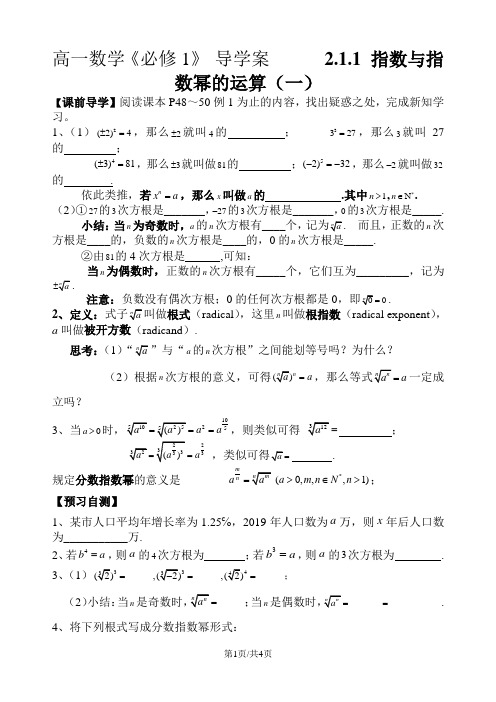 高一数学《必修1》 导学案 2.1.1 指数与指
数幂的运算（一）
【课前导学】阅读课本P48～50例1为止的内容，找出疑惑之处，完成新知学
习。
1、（1）(±2)² = 4，那么±2就叫4的 ； 3³ = 27，那么3就叫27
的 ；
(±3)⁴ = 81，那么±3就叫做81的 ；(−2)⁵ = −32，那么−2就叫做32
的
依此类推，若xⁿ = a，那么x叫做a的 .其中n > 1，n∈N*.
（2）①27的3次方根是 ，−27的3次方根是 ，0的3次方根是 .
小结：当n为奇数时，a的n次方根有____个，记为ⁿ√a. 而且，正数的n次
方根是____的，负数的n次方根是____的，0的n次方根是_____.
②由81的4次方根是______,可知：
当n为偶数时，正数的n次方根有_____个，它们互为_________，记为
±ⁿ√a.
注意：负数没有偶次方根；0的任何次方根都是0，即ⁿ√0 = 0.
2、定义：式子ⁿ√a叫做根式（radical），这里n叫做根指数（radical exponent），
a叫做被开方数（radicand）.
思考：（1）“ⁿ√a”与“a的n次方根”之间能划等号吗？为什么？
（2）根据n次方根的意义，可得(ⁿ√a)ⁿ = a，那么等式ⁿ√aⁿ = a一定成
立吗？
3、当a > 0时，⁵√a¹⁰ = ⁵√(a²)⁵ = a² = a^(10/5)，则类似可得 ³√a¹² = ；
³√a² = ³√(a^(2/3))³ = a^(2/3)，类似可得√a = .
规定分数指数幂的意义是 a^(m/n) = ⁿ√a^m (a > 0, m, n∈N*, n > 1)；
【预习自测】
1、某市人口平均年增长率为1.25℅，2019年人口数为a万，则x年后人口数
为___________万.
2、若b⁴ = a，则a的4次方根为 ；若b³ = a，则a的3次方根为 .
3、（1）(³√2)³ = ,(³√−2)³ = ,(⁴√2)⁴ = ；
（2）小结：当n是奇数时，ⁿ√aⁿ = ；当n是偶数时，ⁿ√aⁿ = = .
4、将下列根式写成分数指数幂形式：
第1页/共4页